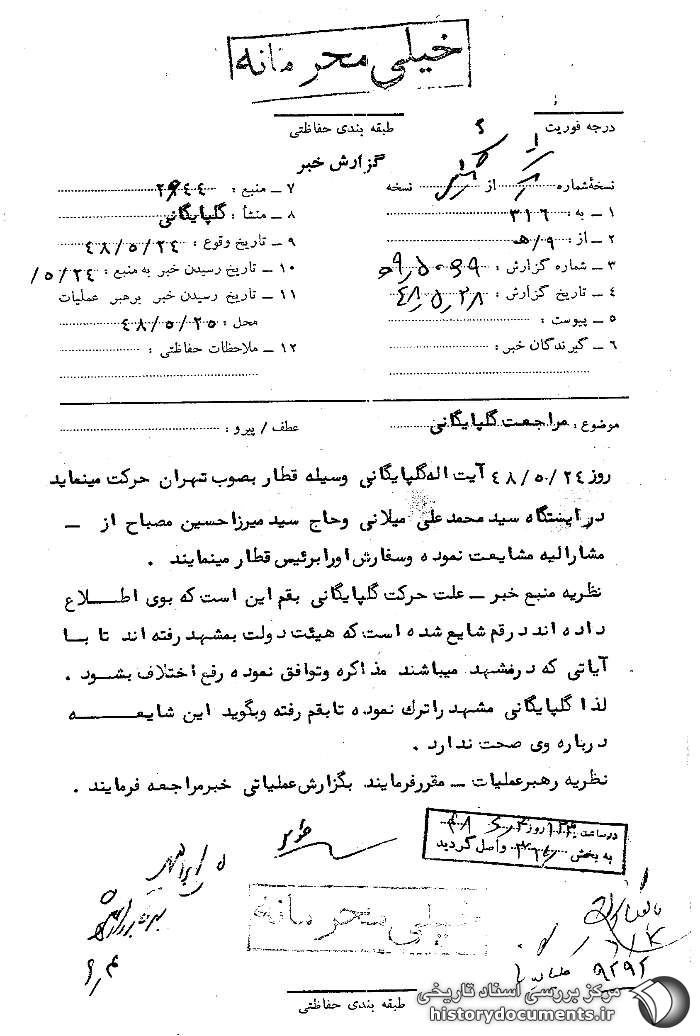 خیلی محرمانه
درجه فوریت
طبقه بندی حفاظتی
گزارش خبر
نسخهٔ شماره از نسخه
۱ ـ به : ۳۱۶
۲ ـ از : ۹/هـ
۳ ـ شماره گزارش :
۴ ـ تاریخ گزارش : ۴۸٫۵٫۲۸
۵ ـ پیوست :
۶ ـ گیرندگان خبر :
۷ ـ منبع :
۸ ـ منشأ : گلپایگانی
۹ ـ تاریخ وقوع : ۴۸/۵/۲۴
۱۰ ـ تاریخ رسیدن خبر به منبع : ۵/۲۴/
۱۱ ـ تاریخ رسیدن خبر برهبر عملیات
محل : ۴۸/۵/۲۵
۱۲ ـ ملاحظات حفاظتی :
موضوع : مراجعت گلپایگانی
عطف / پیرو :
روز ۴۸/۵/۲۴ آیت اله گلپایگانی وسیله قطار بصوب تهران حرکت مینماید
در ایستگاه سید محمدعلی میلانی وحاج سید میرزاحسین مصباح از ـ
مشارالیه مشایعت نموده وسفارش اورا برئیس قطار مینمایند .
نظریه منبع خبر ـ علت حرکت گلپایگانی بقم این است که بوی اطـــلاع
داده اند درقم شایع شده است که هیئت دولت بمشهد رفته اند تا بـا
آیاتی که درمشهد میباشند مذاکره وتوافق نموده رفع اختلاف بشـود .
لذا گلپایگانی مشهد راترك نموده تابقم رفته وبگوید این شایعــــه
درباره وی صحت ندارد .
نظریه رهبرعملیات ـ مقررفرمایند بگزارش عملیاتی خبرمراجعه فرمایند .
درساعت روز
به بخش واصل گردید
خیلی محرمانه
۹۲۹۲
طبقه بندی حفاظتی
مرکز بررسی اسناد تاریخی
historydocuments.ir